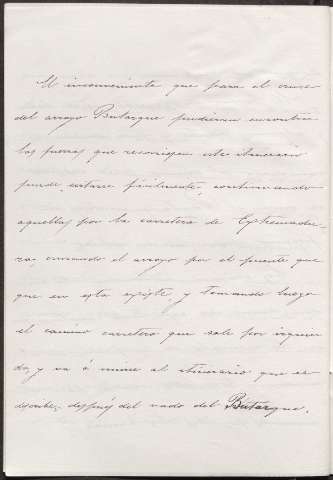 El inconveniente que para el cruce
del arroyo Butarque pudieran encontrar
las fuerzas que recorriesen este itinerario
puede evitarse fácilmente, continuando
aquellas por la carretera de Extremadu-
ra, cruzando el arroyo por el puente que
que en esta existe, y tomando luego
el camino carretero que sale por izquier
da, y va á unirse al itinerario que se
describe, después del vado del Butarque.